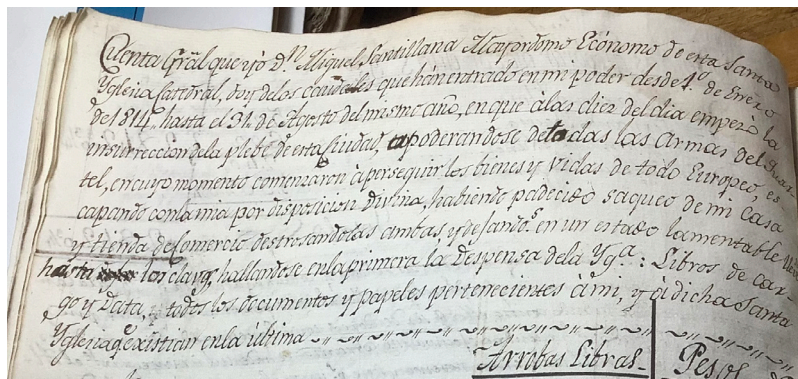 Cuenta Gral que yo Dn. Miguel Santillana Mayordomo Ecónomo de esta Santa
Yglesia Catedral, doy de los caudales que han entrado en mi poder desde 1.º de Enero
de 1814, hasta el 31. de Agosto del mismo año, en que á las diez del dia empezó la
insurreccion de la plebe de esta Ciudad, apoderandose de todas las Armas del Quar-
tel, en cuyo momento comenzaron á perseguir los bienes y vidas de todo Europeo, es
capando con la mia por disposicion divina, habiendo padecido saqueo de mi Casa
y tienda de Comercio destrosandolas ambas, y dejando.s en un estado lamentable
hasta los clavos, hallandose en la primera la Despensa de la Yg.a: Libros de car-
go y Data, todos los documentos y papeles pertenecientes á mi, y á dicha Santa
Yglesia q.e existian en la última
Arrobas Libras Pesos